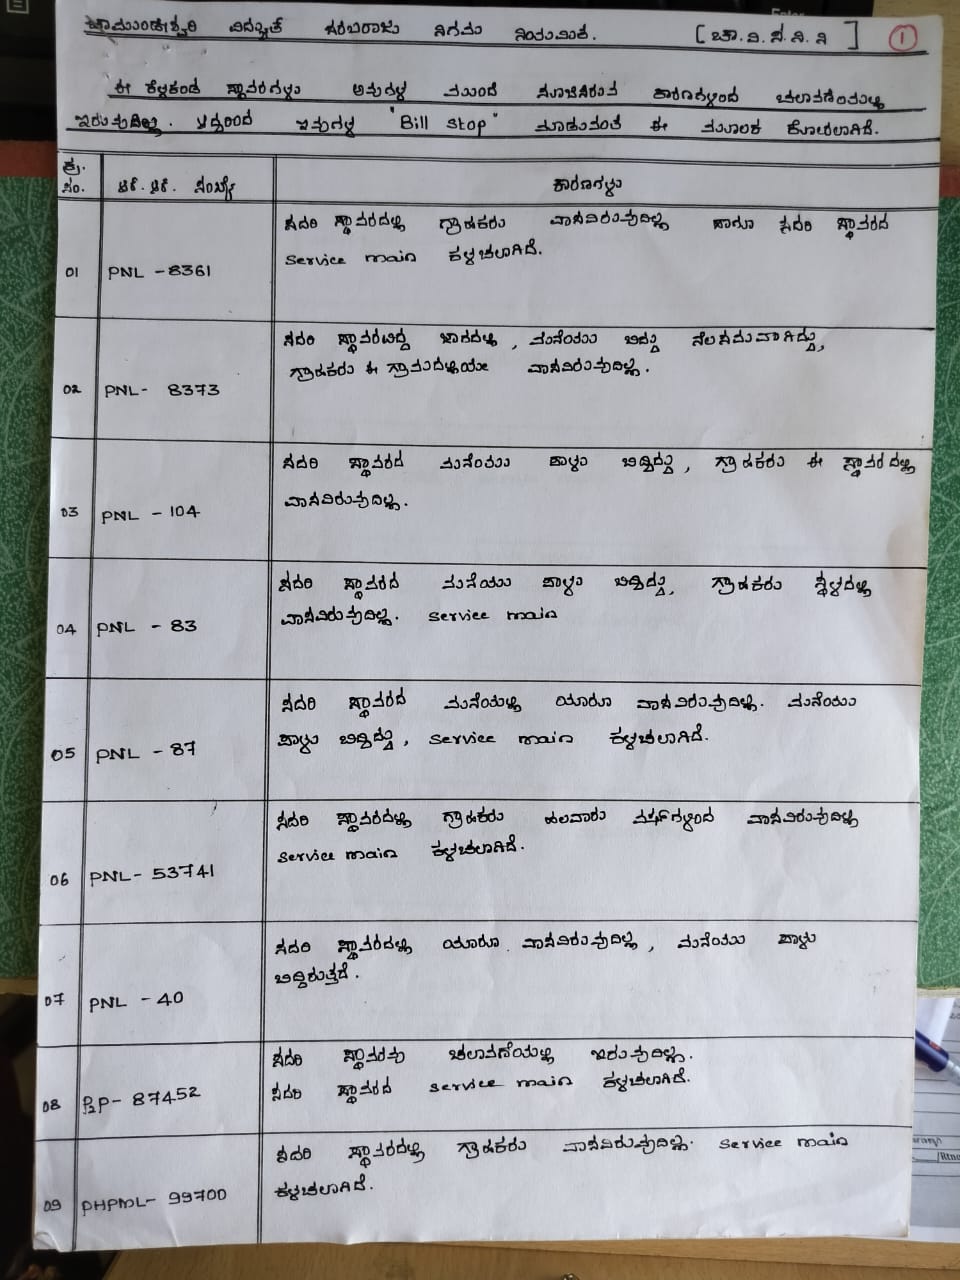 ಚಾಮುಂಡೇಶ್ವರಿ ವಿದ್ಯುತ್ ಸರಬರಾಜು ನಿಗಮ ನಿಯಮಿತ. [ ಚಾ.ವಿ.ಸ.ನಿ.ನಿ ] 1
ಈ ಕೆಳಕಂಡ ಸ್ಥಾವರಗಳು ಅವುಗಳ ಮುಂದೆ ಸೂಚಿಸಿರುವ ಕಾರಣಗಳಿಂದ ಚಲಾವಣೆಯಲ್ಲಿ
ಇರುವುದಿಲ್ಲ. ಆದ್ದರಿಂದ ಇವುಗಳ "Bill stop" ಮಾಡುವಂತೆ ಈ ಮೂಲಕ ಕೋರಲಾಗಿದೆ.
ಕ್ರ.
ಸಂ. ಆರ್.ಆರ್. ಸಂಖ್ಯೆ ಕಾರಣಗಳು
01 PNL - 8361 ಸದರಿ ಸ್ಥಾವರದಲ್ಲಿ ಗ್ರಾಹಕರು ವಾಸವಿರುವುದಿಲ್ಲ ಹಾಗೂ ಸದರಿ ಸ್ಥಾವರದ
service main ಕಳಚಲಾಗಿದೆ.
02 PNL - 8373 ಸದರಿ ಸ್ಥಾವರವಿದ್ದ ಜಾಗದಲ್ಲಿ, ಮನೆಯು ಬಿದ್ದು ನೆಲಸಮವಾಗಿದ್ದು,
ಗ್ರಾಹಕರು ಈ ಗ್ರಾಮದಲ್ಲಿಯೇ ವಾಸವಿರುವುದಿಲ್ಲ.
03 PNL - 104 ಸದರಿ ಸ್ಥಾವರದ ಮನೆಯು ಪಾಳು ಬಿದ್ದಿದ್ದು, ಗ್ರಾಹಕರು ಈ ಸ್ಥಾವರದಲ್ಲಿ
ವಾಸವಿರುವುದಿಲ್ಲ.
04 PNL - 83 ಸದರಿ ಸ್ಥಾವರದ ಮನೆಯು ಪಾಳು ಬಿದ್ದಿದ್ದು, ಗ್ರಾಹಕರು ಸ್ಥಳದಲ್ಲಿ
ವಾಸವಿರುವುದಿಲ್ಲ. service main
05 PNL - 87 ಸದರಿ ಸ್ಥಾವರದ ಮನೆಯಲ್ಲಿ ಯಾರೂ ವಾಸವಿರುವುದಿಲ್ಲ. ಮನೆಯು
ಪಾಳು ಬಿದ್ದಿದ್ದು, service main ಕಳಚಲಾಗಿದೆ.
06 PNL- 53741 ಸದರಿ ಸ್ಥಾವರದಲ್ಲಿ ಗ್ರಾಹಕರು ಹಲವಾರು ವರ್ಷಗಳಿಂದ ವಾಸವಿರುವುದಿಲ್ಲ
service main ಕಳಚಲಾಗಿದೆ.
07 PNL - 40 ಸದರಿ ಸ್ಥಾವರದಲ್ಲಿ ಯಾರೂ ವಾಸವಿರುವುದಿಲ್ಲ, ಮನೆಯು ಪಾಳು
ಬಿದ್ದಿರುತ್ತದೆ.
08 87452 ಸದರಿ ಸ್ಥಾವರವು ಚಲಾವಣೆಯಲ್ಲಿ ಇರುವುದಿಲ್ಲ.
ಸದರಿ ಸ್ಥಾವರದ service main ಕಳಚಲಾಗಿದೆ.
09 PHPML- 99700 ಸದರಿ ಸ್ಥಾವರದಲ್ಲಿ ಗ್ರಾಹಕರು ವಾಸವಿರುವುದಿಲ್ಲ. service main
ಕಳಚಲಾಗಿದೆ.